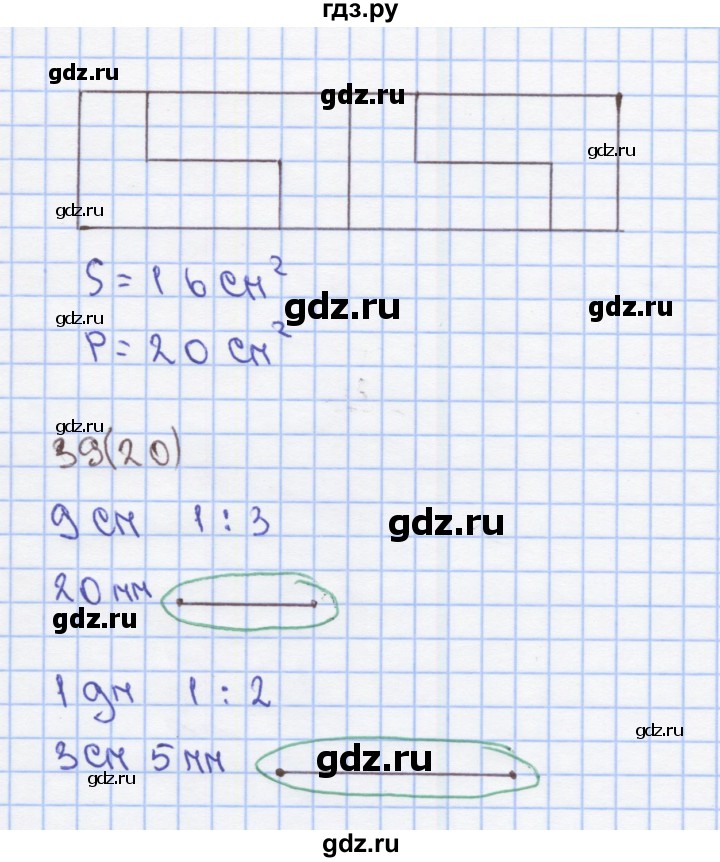 гдз.ру
gdz.ru
gdz.ru
gdz.ru
gdz.ru
S = 16 см²
gdz.ru
gdz.ru
gdz.ru
P = 20 см²
gdz.ru
39(20)
9 см 1 : 3
gdz.ru
20 мм
gdz.ru
1 дм 1 : 2
gdz.ru
3 см 5 мм
gdz.ru
gdz.ru
gdz.ru